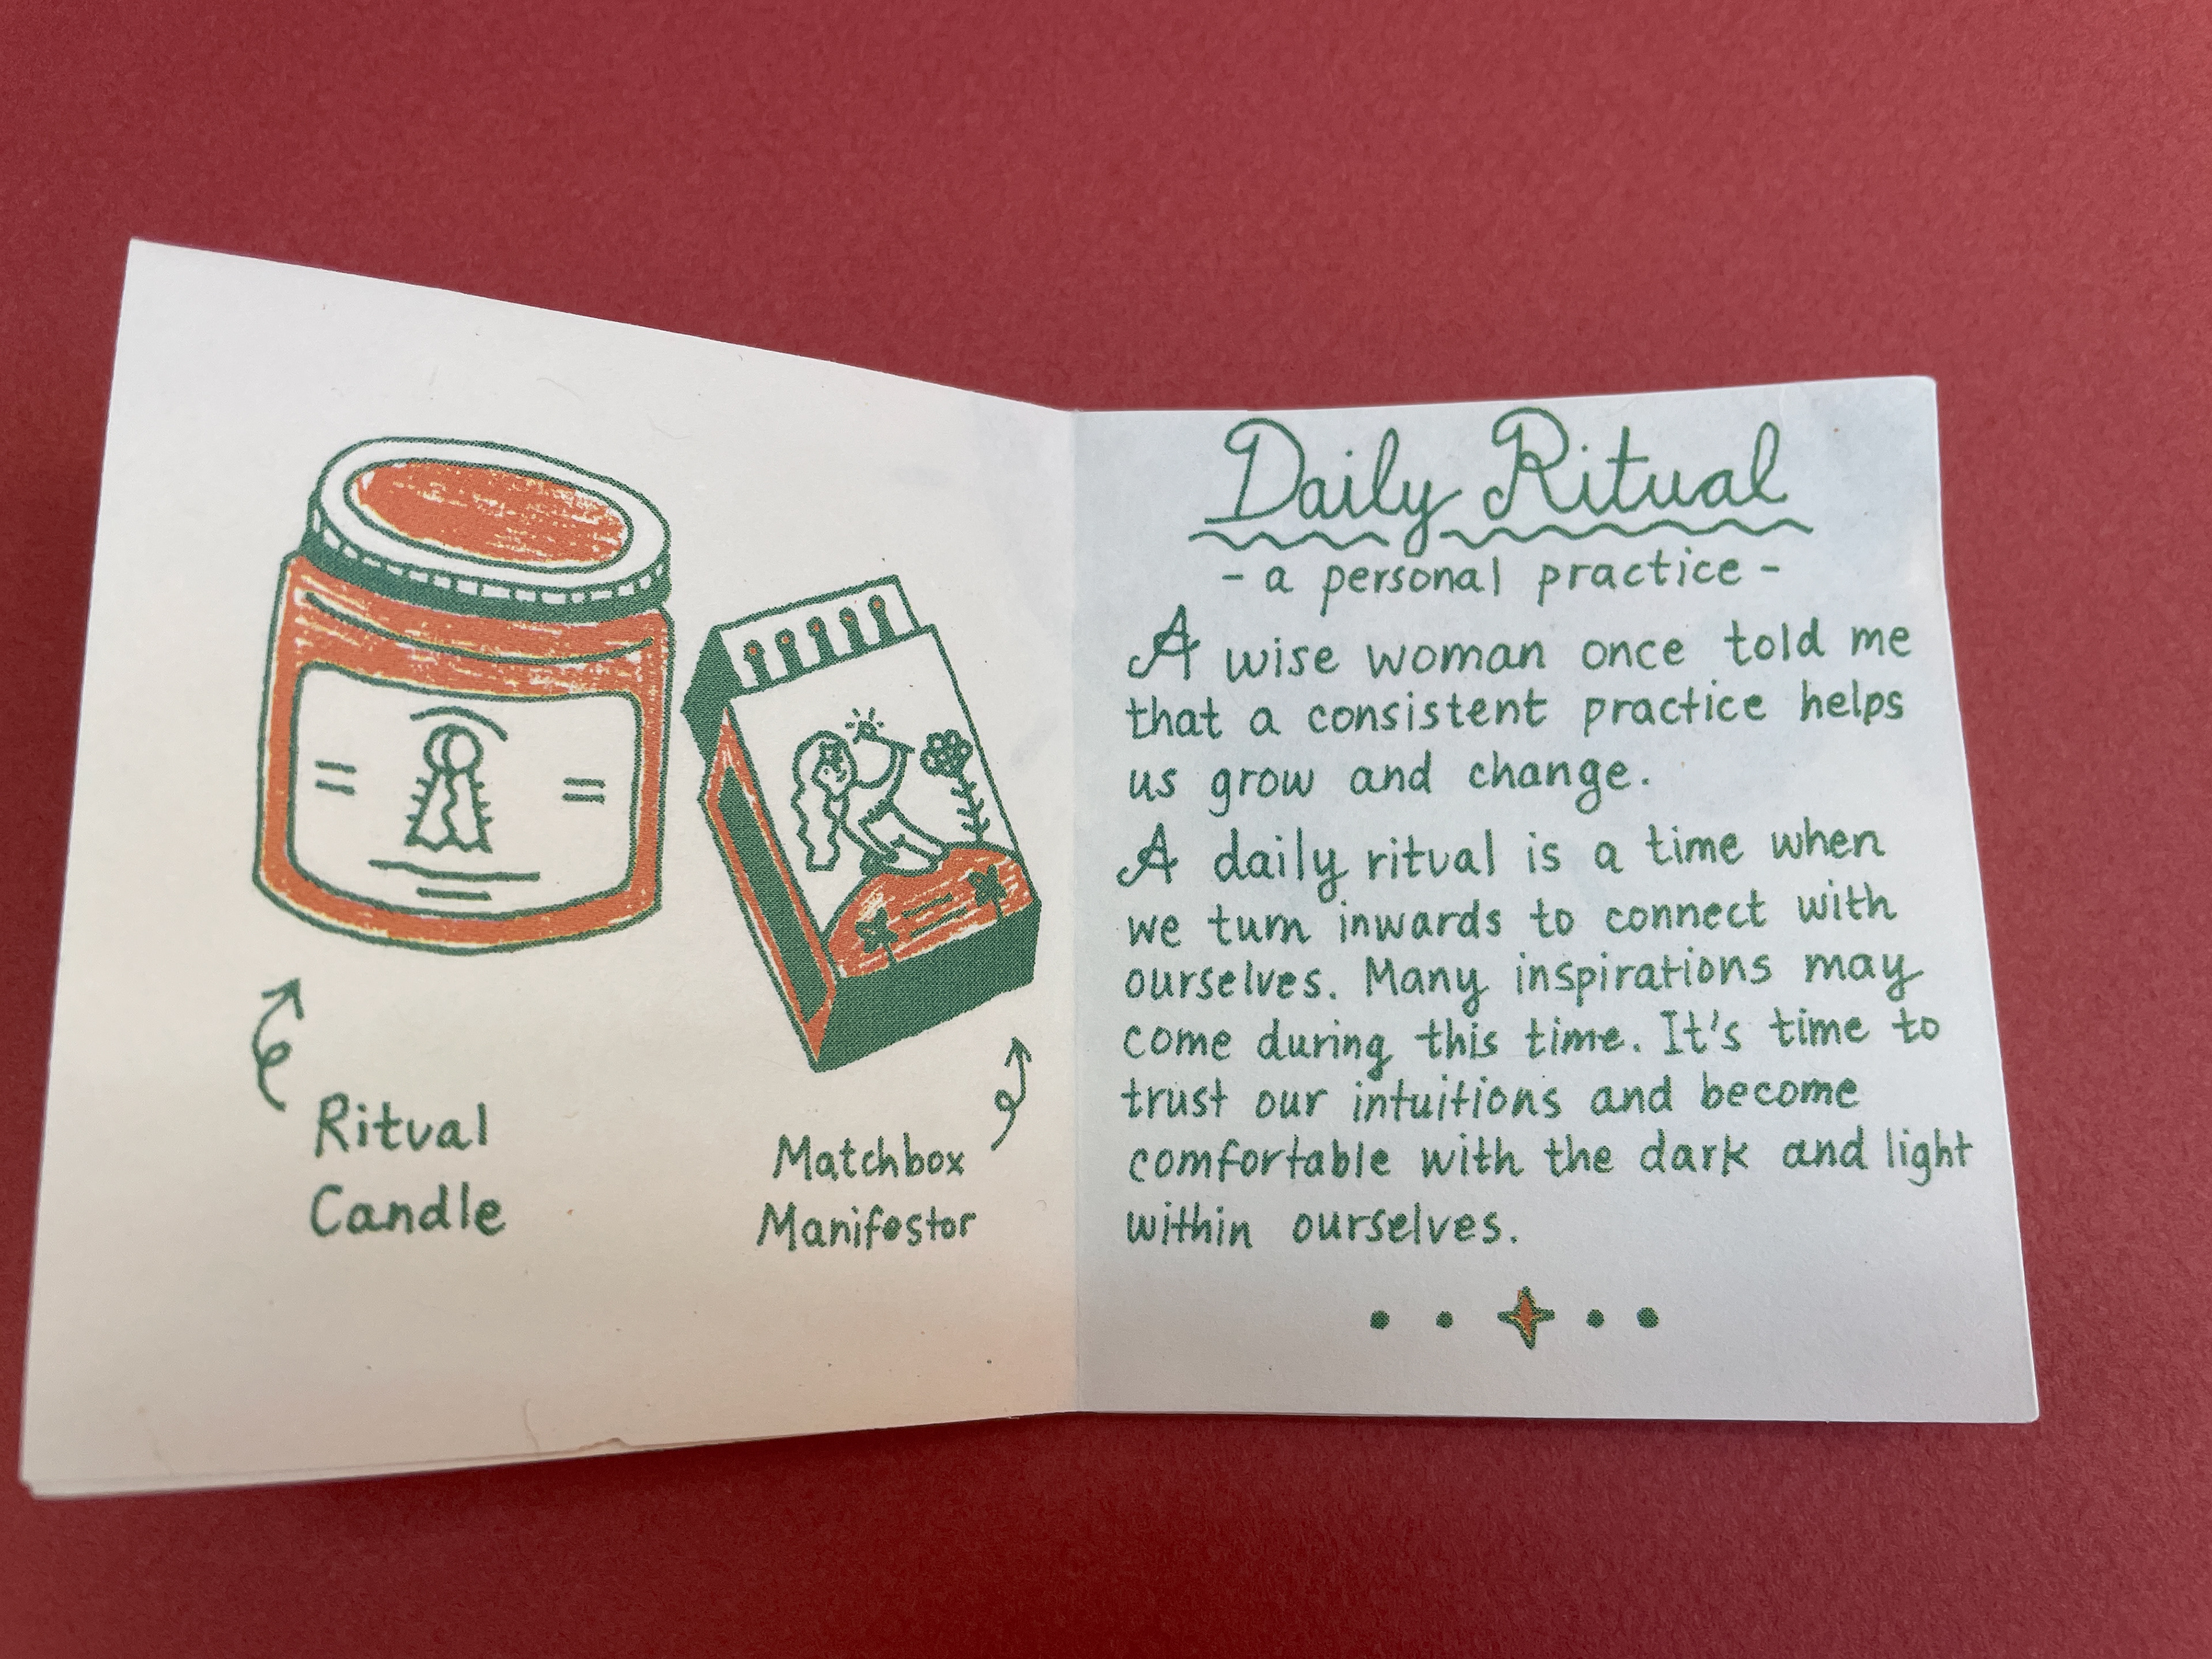 Ritual
Candle
Matchbox
Manifestor
Daily Ritual
- a personal practice -
A wise woman once told me
that a consistent practice helps
us grow and change.
A daily ritual is a time when
we turn inwards to connect with
ourselves. Many inspirations may
come during this time. It's time to
trust our intuitions and become
comfortable with the dark and light
within ourselves.